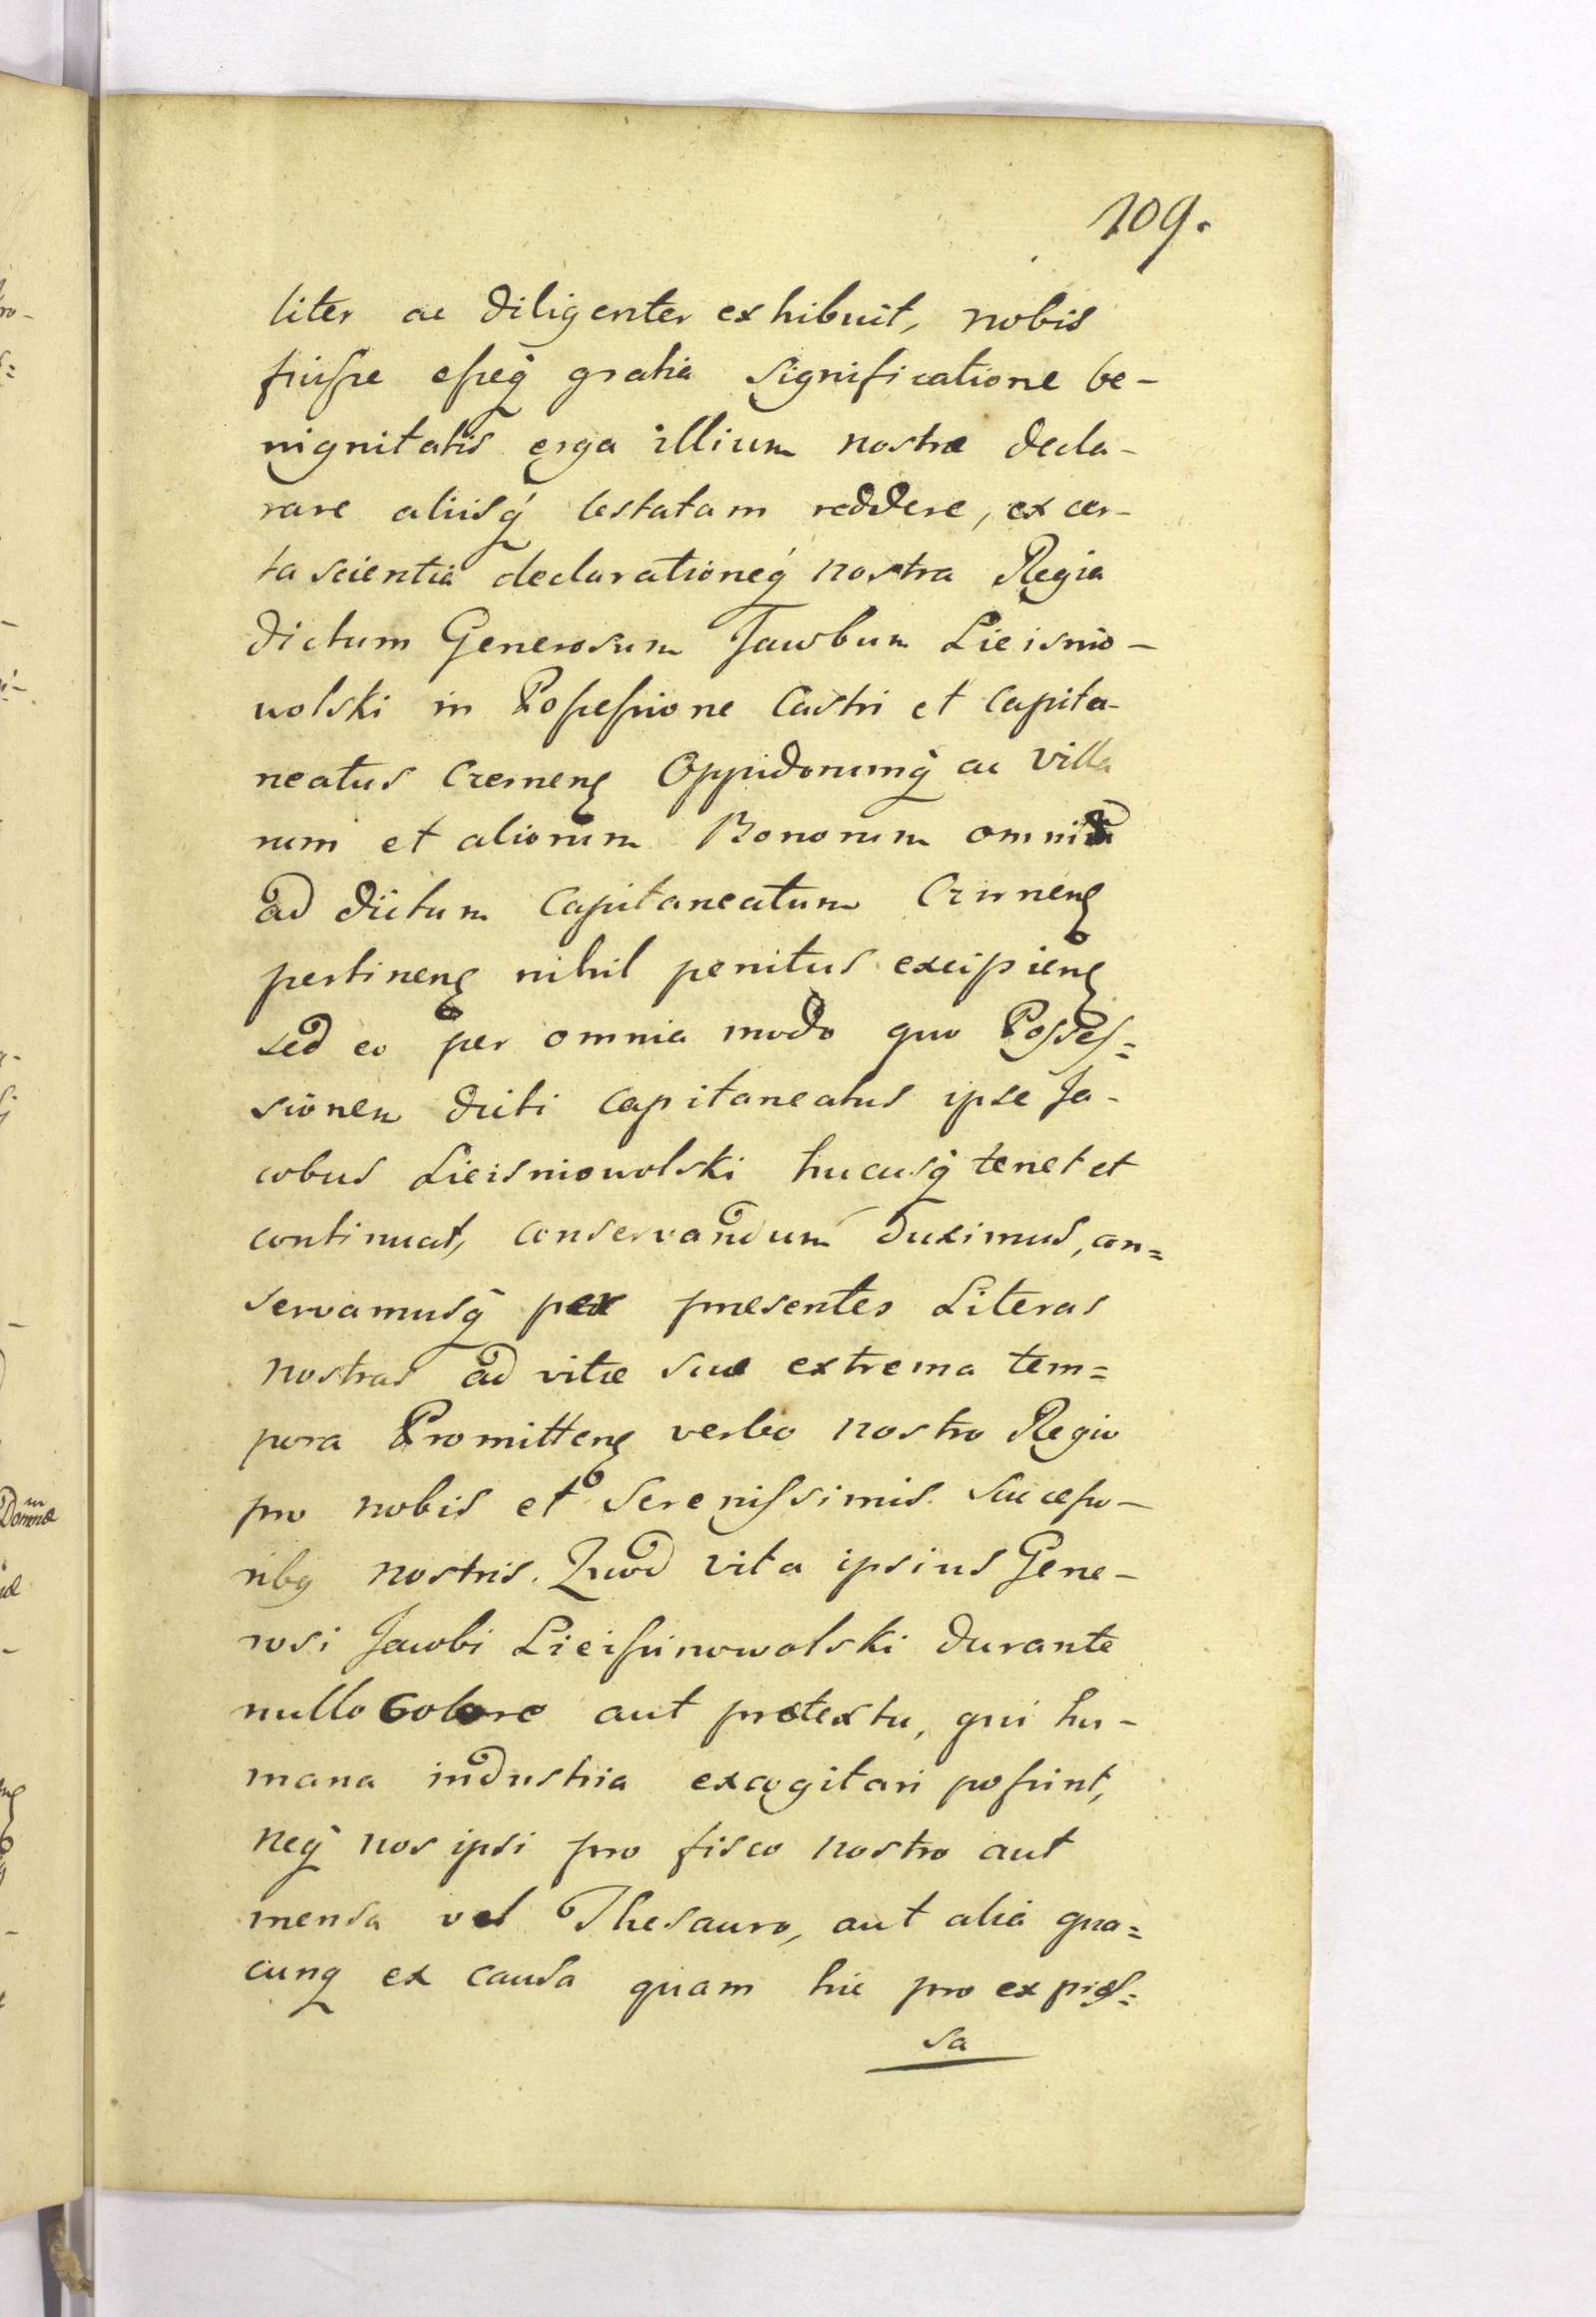 109.
liter ac diligenter exhibuit, nobis
fuiſse eſseq́ gratia significatione be-
nignitatis erga illium nostræ decla-
rare aliisq́ testatam reddere, ex cer-
ta scientia declarationeq́ nostra Regia
dictum Generosum Jacobum Lieisnio-
wolski in Poſseſsione Castri et Capita-
neatus Cremenꝫ Oppidorumq́ ac Villa
rum et aliorum Bonorum omniū
ad dictum Capitaneatum Crzmenꝫ
pertinenꝫ nihil penitus excipienꝫ
sed eo per omnia modo quo Posſeſ=
sionem dicti Capitaneatus ipse Ja-
cobus Lieisniowolski hucusq́ tenet et
continuat, conservandum duximus, con=
servamusq́ per præsentes Literas
nostras ad vitæ suæ extrema tem=
pora Promittenꝫ verbo nostro Regio
pro nobis et Sereniſsimis Succeſso-
ribꝫ nostris. Quod vita ipsius Gene-
rosi Jacobi Lieiſniowolski durante
nullo Colore aut prætextu, qui hu-
mana industria excogitari poſsint,
neq́ nos ipsi pro fisco nostro aut
mensa vel Thesauro, aut alia qua=
cunq ex causa quam hic pro expreſ=
sa